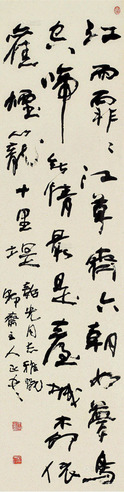 江雨霏〻江草齊六朝如夢鳥
空啼無情最是臺城柳依
舊煙籠十里堤
光同志雅
主人